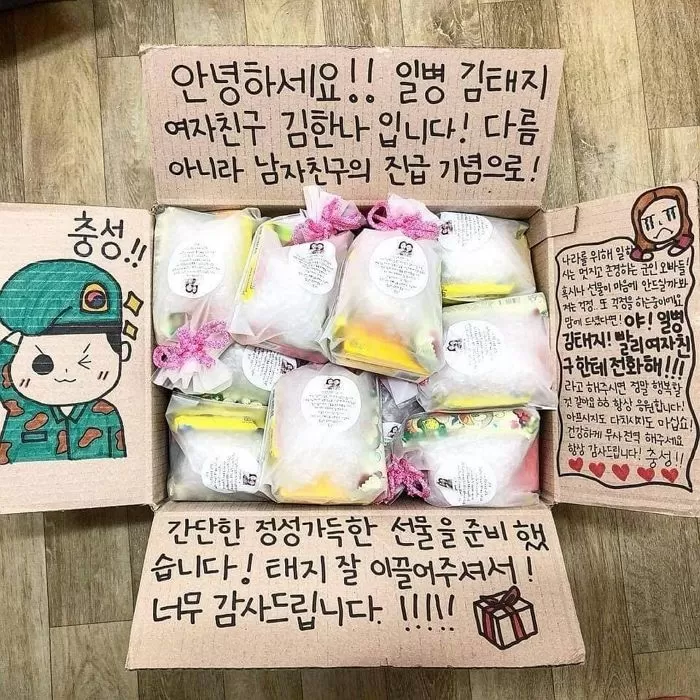 안녕하세요!! 일병 김태지
여자친구 김한나 입니다! 다름
아니라 남자친구의 진급 기념으로!
충성!!
나라를 위해 일하
시는 멋지고 존경하는 군인 오빠들!
혹시나 선물이 마음에 안드실까봐
저는 걱정.. 또 걱정을 하는중이에요
맘에 드셨다면! 야! 일병
김태지! 빨리 여자친
구한테 전화해!!!
라고 해주시면 정말 행복할
것 같아요 ㅎㅎ 항상 응원합니다!
아프시지도 다치시지도 마십쇼!
건강하게 무사 전역 해주세요
항상 감사드립니다! 충성!!
간단한 정성가득한 선물을 준비 했
습니다! 태지 잘 이끌어주셔서!
너무 감사드립니다. !!!!!